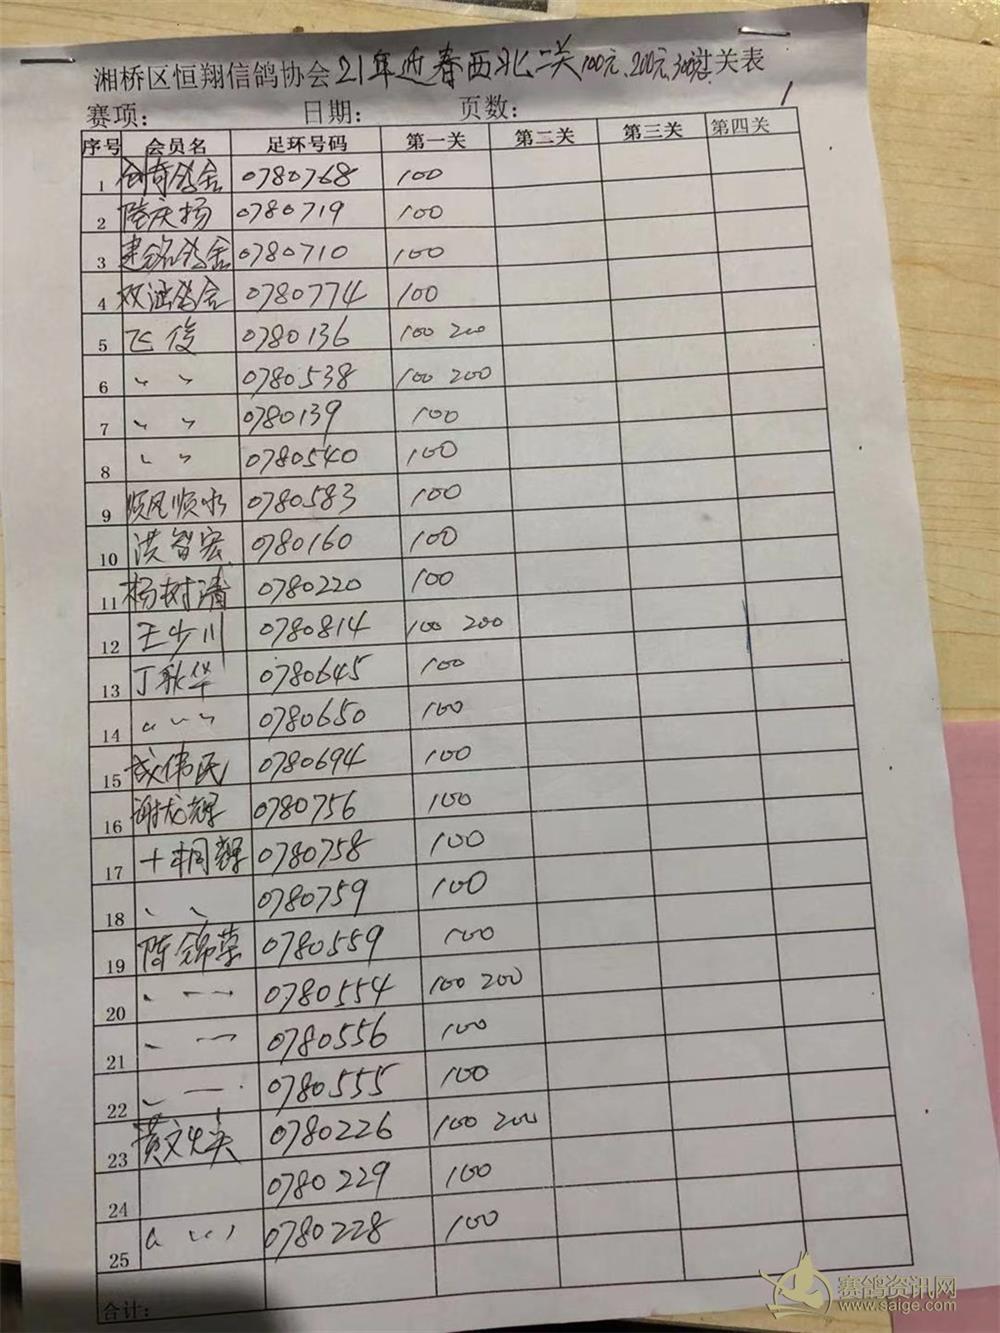 湘桥区恒翔信鸽协会21年迎春西北二关100元、200元、300过关表
赛项: 日期: 页数: 1
序号 会员名 足环号码 第一关 第二关 第三关 第四关
1 鸽舍 0780768 100
2 陆庆扬 0780719 100
3 建铭鸽舍 0780710 100
4 双涵鸽舍 0780774 100
5 飞俊 0780136 100 200
6 〃 〃 0780538 100 200
7 〃 〃 0780139 100
8 〃 〃 0780540 100
9 顺风顺水 0780583 100
10 洪智宏 0780160 100
11 杨树清 0780220 100
12 王少川 0780814 100 200
13 丁耿华 0780645 100
14 〃 〃 〃 0780650 100
15 成伟民 0780694 100
16 谢龙辉 0780756 100
17 辉 0780758 100
18 、 、 0780759 100
19 陈锦荣 0780559 100
20 0780554 100 200
21 0780556 100
22 0780555 100
23 黄文 0780226 100 200
24 0780229 100
25 〃 〃 0780228 100
合计:
赛鸽资讯网
www.saige.com